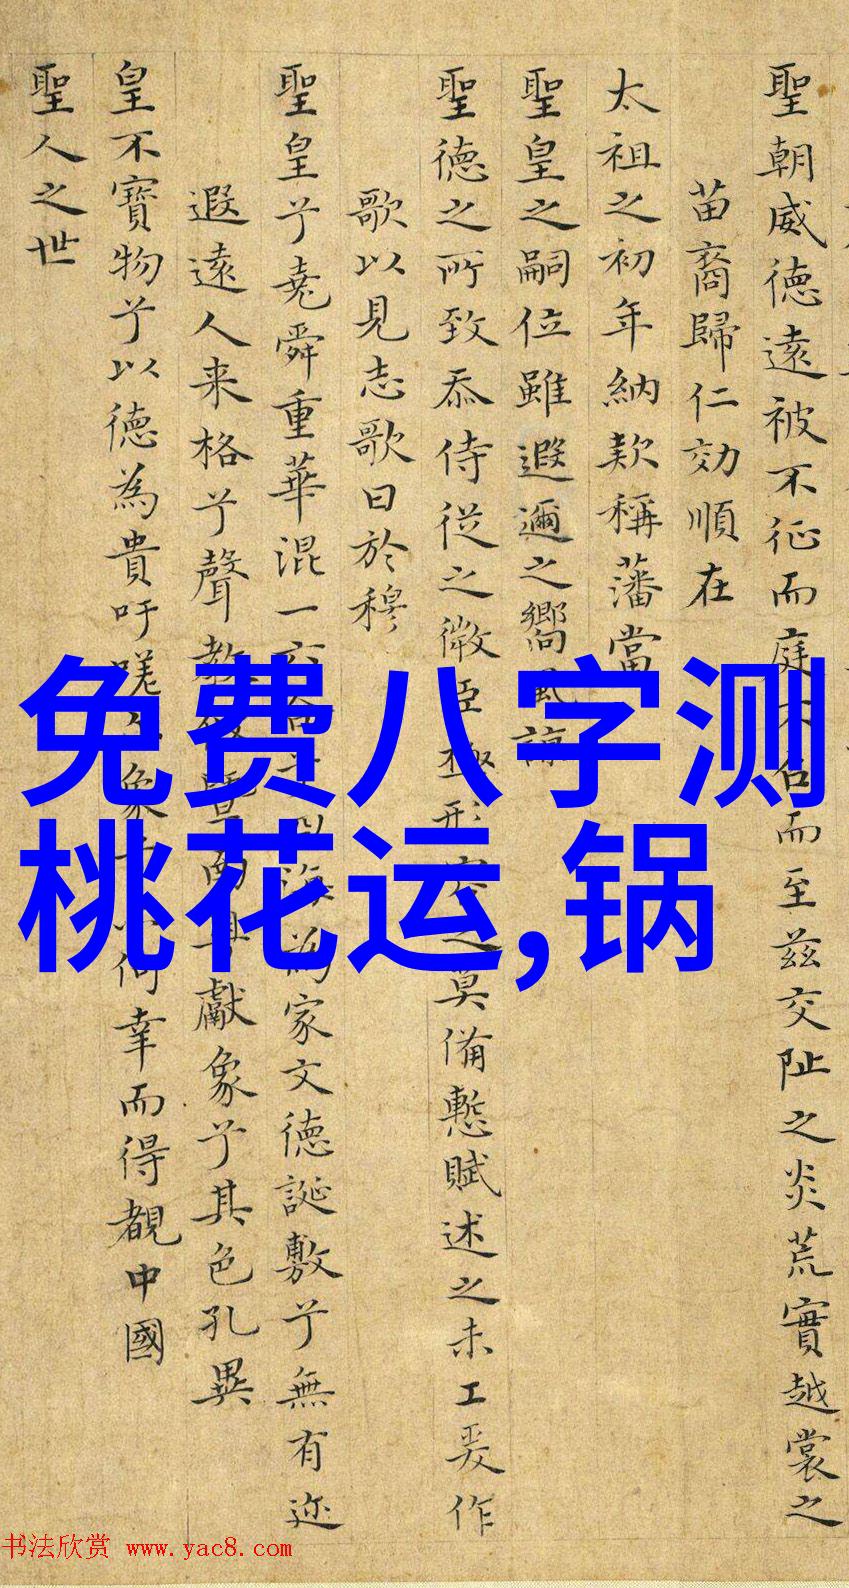 聖朝威德遠被不征而庭不召而至茲交阯之炎荒實越裳之
苗裔歸仁効順在
太祖之初年納款稱藩當
聖皇之嗣位雖遐邇之嚮風諒
聖德之所致忝侍從之微臣極形容之莫備慙賦述之未工爰作
歌以見志歌曰於穆
聖皇兮堯舜重華混一六合兮四海為家文德誕敷兮無有迩
遐遠人来格兮聲教
獻象兮其色孔異
皇不寶物兮以德為貴吁嗟
象兮
何幸而得覩中國
聖人之世
免费八字测
桃花运,锅
书法欣赏 www.yac8.com